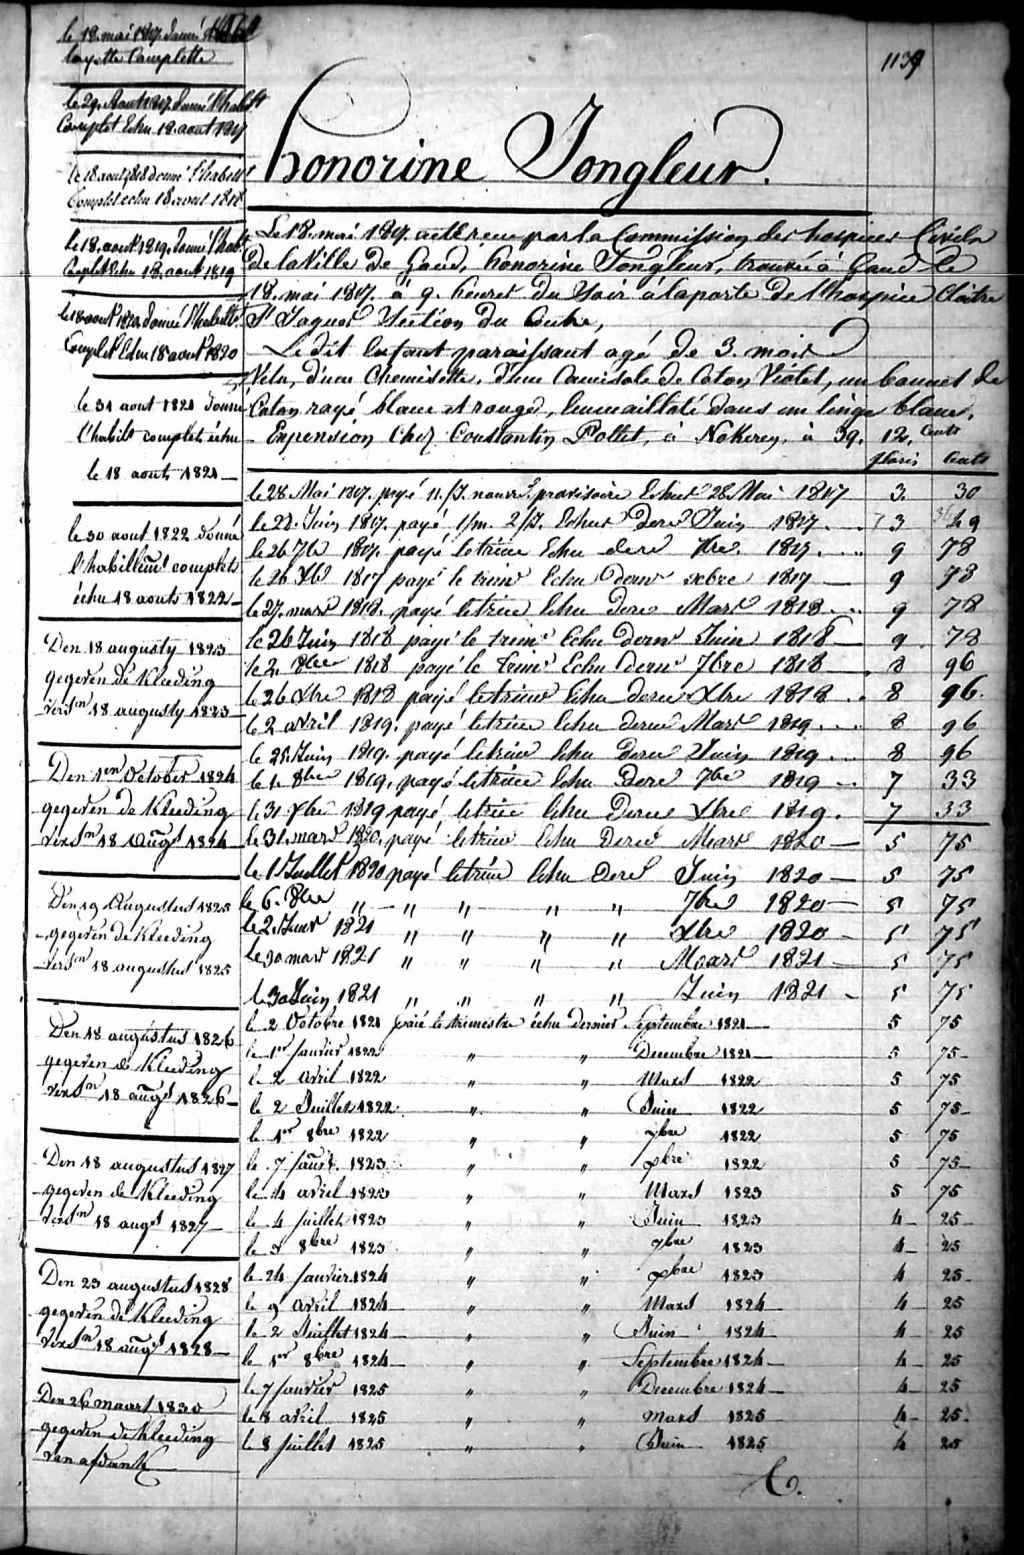 1139
le 18. mai 1817. donné
layette Complette
le 29. Aout 1817. donné l'habilt
Complet Echu 18. aout 1817
le 18 aout 1818 donné l'habilt
Complet echu 18. aout 1818
le 18. aout 1819. donné l'habt
Complet Echu 18. aout 1819
le 18 aout 1820. donné l'habilt
Complet Echu 18 aout 1820
le 31 aout 1821 donné
l'habilt complet, échu
le 18 aout 1821 —
le 30 aout 1822 donné
l'habillemt complet
échu 18 aouts 1822 —
Den 18 augusty 1823
gegeven de Kleeding
versn 18 augusty 1823 —
Den 1en October 1824
gegeven de Kleeding
versn 18 augs 1824 —
Den 19 Augustus 1825
gegeven de Kleeding
versn 18 augustus 1825
Den 18 augustus 1826
gegeven de Kleeding
versn 18 augs 1826 —
Den 18 augustus 1827
gegeven de Kleeding
versn 18 augs 1827 —
Den 23 augustus 1828
gegeven de Kleeding
versn 18 augs 1828 —
Den 26 maart 1830
gegeven de Kleeding
van afdank
honorine Jongleur.
Le 18. mai 1817. a été reçu par la Commission des hospices Civils
de la Ville de Gand, honorine Jongleur, trouvée à Gand le
18. mai 1817. à 9. heures du Soir à la porte de l'hospice Cloitre
St Jaques Section du Centre,
Le dit Enfant paraissant agé de 3. mois
Vetu, d'une Chemisette, d'une Camisole de Coton Violet, un bonnet de
Coton rayé blanc et rouge, Emmailloté dans un linge blanc.
En pension Chez Constantin Pottet, à Nokerey, à 39. 12. Cents
floris Cents
le 28 Mai 1817. payé 11./J. nourre provisoire Echus 28 Mai 1817 3. 30
le 28. Juin 1817. payé 1/m. 2/J. Echus dere Juin 1817. 3 49
le 26 7b 1817. payé le trime Echu dere 7bre. 1817. 9 78
le 26 Xb 1817 payé le trimr Echu dernr xbre 1817 — 9 78
le 27. mars 1818. payé le trime Echu dere Mars 1818 . . 9 78
le 26 Juin 1818 payé le trimr Echu dernr Juin 1818 — 9 78
le 2. 8bre 1818 payé le trimr Echu dernr 7bre 1818 — 8 96
le 26 Xbre 1818 payé le trimr Echu dere Xbre 1818 . . 8 96.
le 2 avril 1819. payé le trime Echu dere Mars 1819. . . 8 96
le 25. Juin 1819. payé le trime Echu Dere Juin 1819 . . 8 96
le 1. 8bre 1819. payé le trime Echu Dere 7bre 1819 — 7 33
le 31 Xbre 1819 payé le trime Echu Dere Xbre 1819. 7 33
le 31. mars 1820. payé le trime Echu Dere Mars 1820 — 5 75
le 1 Juillet 1820 payé le trime Echu dere Juin 1820 — 5 75
le 6. 8bre " — " " " " 7bre 1820 — 5 75
le 2. Janr 1821 " " " " Xbre 1820 — 5 75
le 30 mars 1821 " " " " Mars 1821 — 5 75
le 30 Juin 1821 " " " " Juin 1821 — 5 75
le 2 Octobre 1821 paié le trimestre échu dernier Septembre 1821 — 5 75
le 1er janvier 1822 " " Decembre 1821 — 5 75 —
le 2 avril 1822 " " Mars 1822 5 75
le 2 Juillet 1822 " " Juin 1822 5 75 —
le 1er 8bre 1822 " " 7bre 1822 5 75
le 7 janvr. 1823 " " xbre 1822 5 75 —
le 4 avril 1823 " " Mars 1823 5 75
le 4 juillet 1823 " " Juin 1823 4 — 25 —
le 3 8bre 1823 " " 7bre 1823 4 — 25
le 24 janvier 1824 " " xbre 1823 4 25 —
le 9 avril 1824 — " " Mars 1824 4 25
le 2 Juillet 1824 — " " Juin 1824 4 25
le 1er 8bre 1824 — " " Septembre 1824 — 4 — 25
le 7 janvier 1825 " " Decembre 1824 — 4 — 25
le 8 avril 1825 " " Mars 1825 4 — 25 —
le 8 juillet 1825 " " Juin 1825 4 25